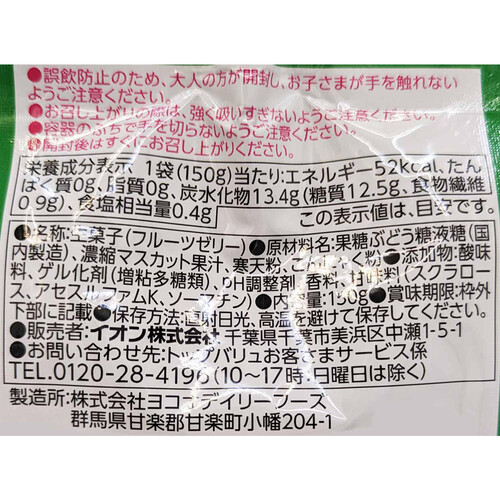 ●誤飲防止のため、大人の方が開封し、お子さまが手を触れない
ようご注意ください。
●お召し上がりの際は、強く吸いすぎないようご注意ください。
●容器のふちで手を切らないようご注意ください。
●開封後はすぐにお召し上がりください。
栄養成分表示 1袋(150g)当たり:エネルギー52kcal、たん
ぱく質0g、脂質0g、炭水化物13.4g(糖質12.5g、食物繊維
0.9g)、食塩相当量0.4g
この表示値は、目安です。
●名称:生菓子(フルーツゼリー)●原材料名:果糖ぶどう糖液糖(国
内製造)、濃縮マスカット果汁、寒天粉、こんにゃく粉●添加物:酸味
料、ゲル化剤(増粘多糖類)、pH調整剤、香料、甘味料(スクラロー
ス、アセスルファムK、ソーマチン)●内容量:150g●賞味期限:枠外
下部に記載●保存方法:直射日光、高温を避けて保存してください。
●販売者:イオン株式会社 千葉県千葉市美浜区中瀬1-5-1
●お問い合わせ先:トップバリュお客さまサービス係
TEL.0120-28-4196(10~17時:日曜日は除く)
製造所:株式会社ヨコオデイリーフーズ
群馬県甘楽郡甘楽町小幡204-1